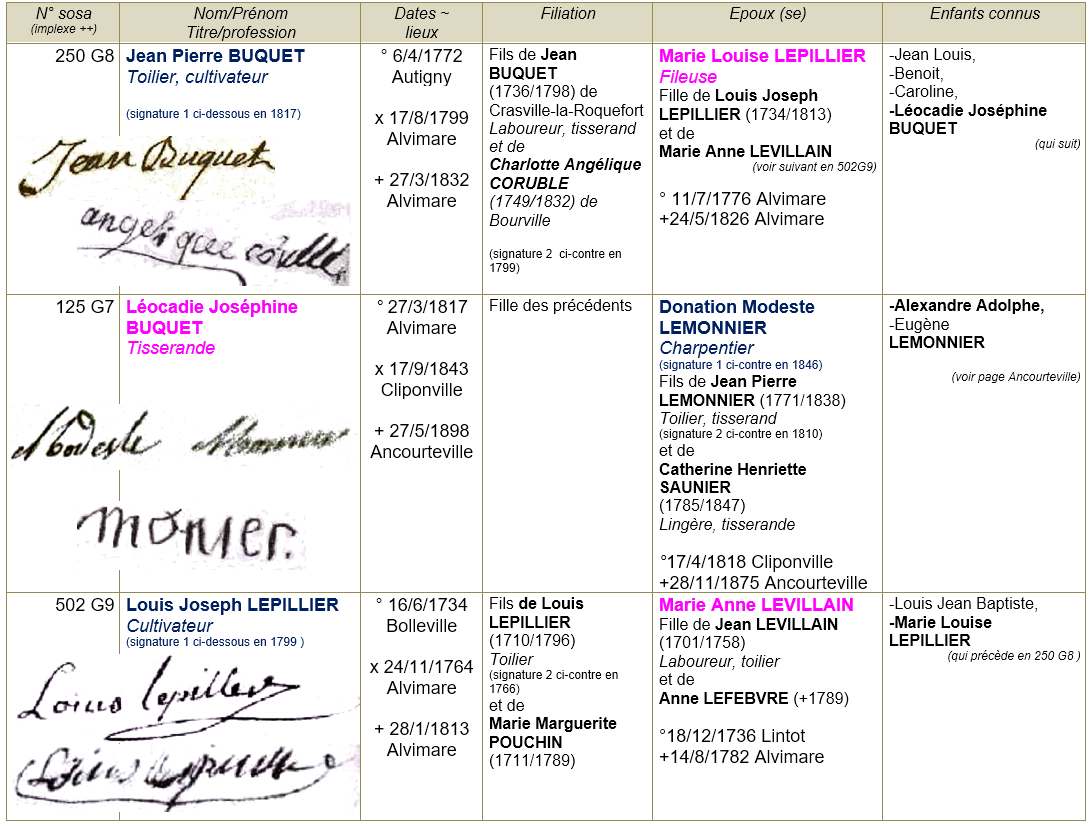 N° sosa
(implexe ++)
Nom/Prénom
Titre/profession
Dates ~
lieux
Filiation
Epoux (se)
Enfants connus
250 G8
Jean Pierre BUQUET
Toilier, cultivateur
(signature 1 ci-dessous en 1817)
Jean Buquet
angelique corulle
° 6/4/1772
Autigny
x 17/8/1799
Alvimare
+ 27/3/1832
Alvimare
Fils de Jean
BUQUET
(1736/1798) de
Crasville-la-Roquefort
Laboureur, tisserand
et de
Charlotte Angélique
CORUBLE
(1749/1832) de
Bourville
(signature 2 ci-contre en
1799)
Marie Louise LEPILLIER
Fileuse
Fille de Louis Joseph
LEPILLIER (1734/1813)
et de
Marie Anne LEVILLAIN
(voir suivant en 502G9)
° 11/7/1776 Alvimare
+24/5/1826 Alvimare
-Jean Louis,
-Benoit,
-Caroline,
-Léocadie Joséphine
BUQUET
(qui suit)
125 G7
Léocadie Joséphine
BUQUET
Tisserande
Modeste
monier.
° 27/3/1817
Alvimare
x 17/9/1843
Cliponville
+ 27/5/1898
Ancourteville
Fille des précédents
Donation Modeste
LEMONNIER
Charpentier
(signature 1 ci-contre en 1846)
Fils de Jean Pierre
LEMONNIER (1771/1838)
Toilier, tisserand
(signature 2 ci-contre en 1810)
et de
Catherine Henriette
SAUNIER
(1785/1847)
Lingère, tisserande
°17/4/1818 Cliponville
+28/11/1875 Ancourteville
-Alexandre Adolphe,
-Eugène
LEMONNIER
(voir page Ancourteville)
502 G9
Louis Joseph LEPILLIER
Cultivateur
(signature 1 ci-dessous en 1799 )
Louis lepillier
Louis
° 16/6/1734
Bolleville
x 24/11/1764
Alvimare
+ 28/1/1813
Alvimare
Fils de Louis
LEPILLIER
(1710/1796)
Toilier
(signature 2 ci-contre en
1766)
et de
Marie Marguerite
POUCHIN
(1711/1789)
Marie Anne LEVILLAIN
Fille de Jean LEVILLAIN
(1701/1758)
Laboureur, toilier
et de
Anne LEFEBVRE (+1789)
°18/12/1736 Lintot
+14/8/1782 Alvimare
-Louis Jean Baptiste,
-Marie Louise
LEPILLIER
(qui précède en 250 G8 )